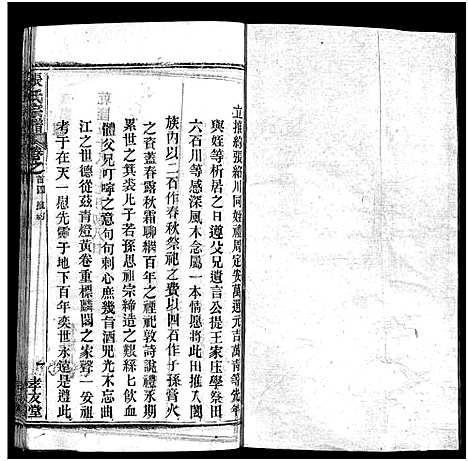 立推約張紹川同姪禮周定安萬選元吉萬南等先年
與姪等析居之日遵父兄遺言公提王家庄學祭田
六石川等感深風木念屬一本情愿將此田推入闔
族內以二石作春秋祭祀之費以四石作子孫膏火
之資蓋春露秋霜聊綿百年之禋祀敦詩說禮永期
累世之箕裘凡子若孫思祖宗締造之艱絲七飲血
體父兄叮嚀之意句句刺心庶幾旨酒咒光木忘曲
江之世德從茲青燈黃卷重標麟閣之家聲一妥祖
考于在天一慰先靈于地下百年奕世永遠是遵此
張氏宗譜
卷之首
孝友堂